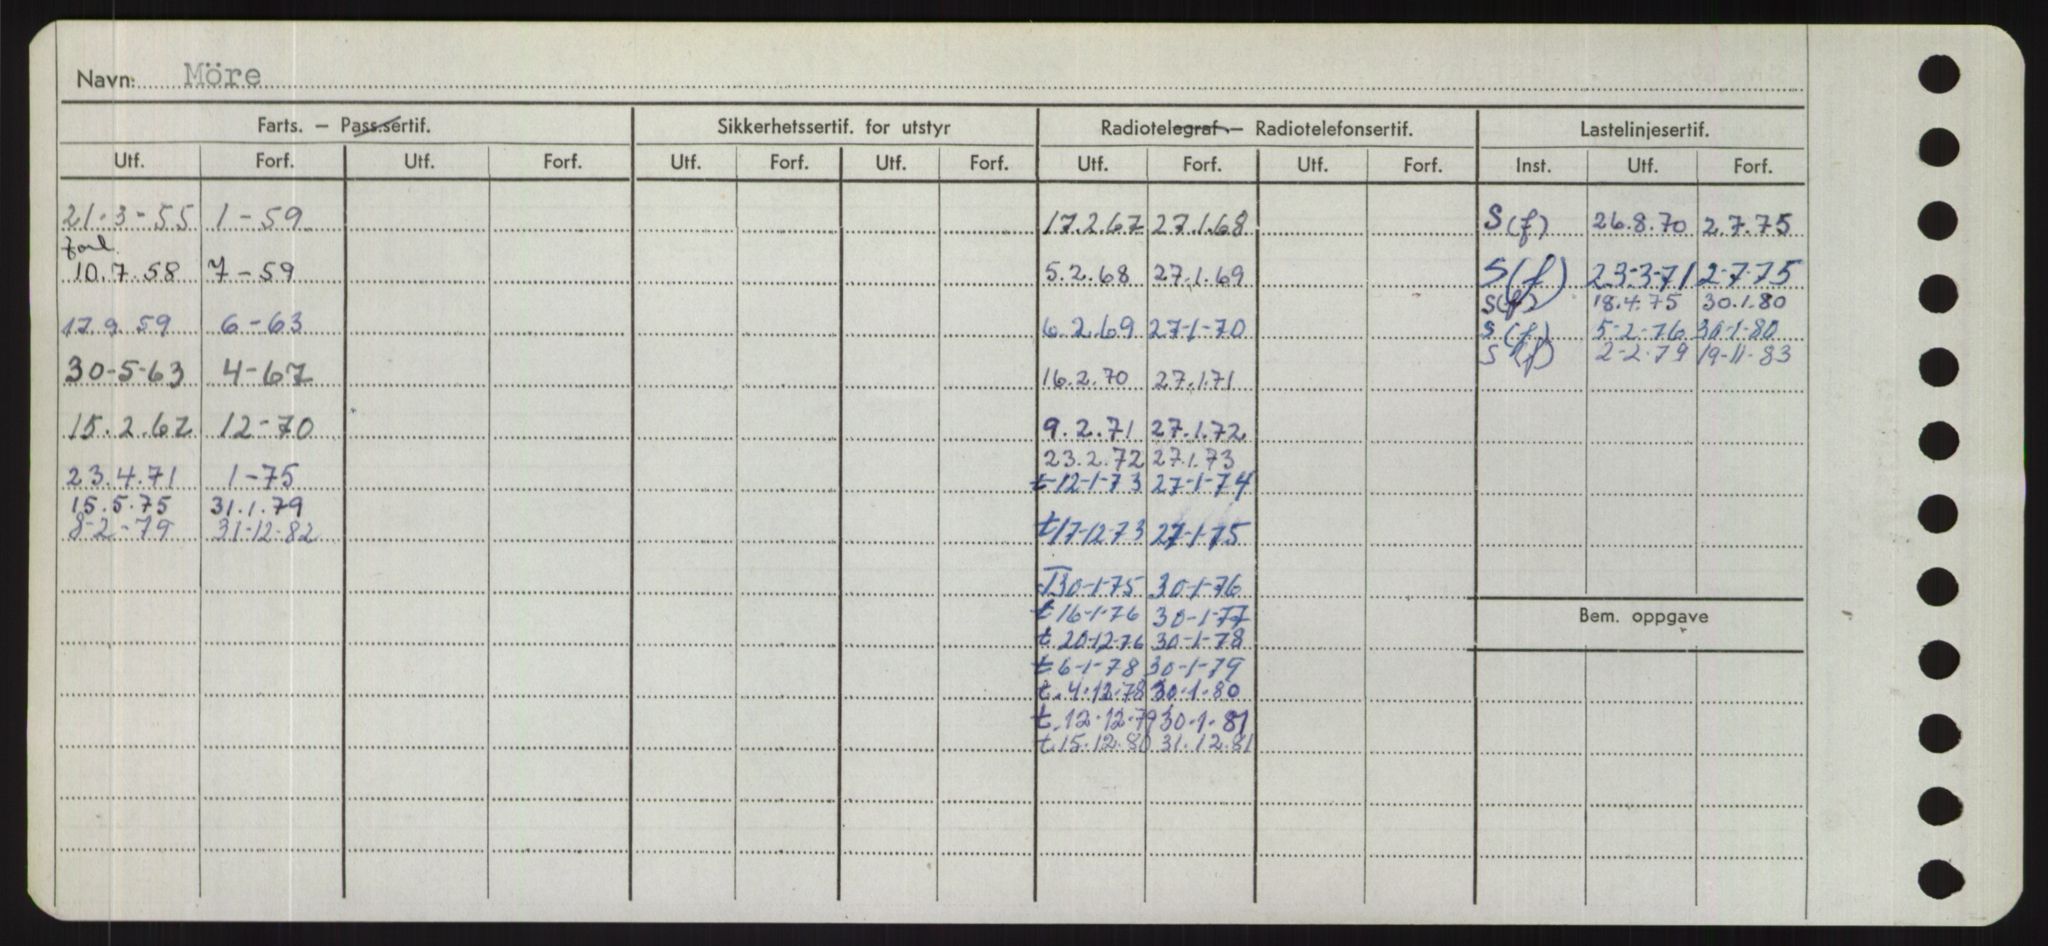 Navn: Möre
Farts. – Pass.sertif. Sikkerhetssertif. for utstyr Radiotelegraf – Radiotelefonsertif. Lastelinjesertif.
Utf. Forf. Utf. Forf. Utf. Forf. Utf. Forf. Utf. Forf. Utf. Forf. Inst. Utf. Forf.
21-3-55 1-59 17.2.67 27.1.68 S(f) 26.8.70 2.7.75
forl.
10.7.58 7-59 5.2.68 27.1.69 S(f) 23-3-71 2-7-75
S(f) 18.4.75 30.1.80
17.9.59 6-63 6.2.69 27-1-70 S(f) 5-2-76 30-1-80
S(f) 2-2-79 19-11-83
30-5-63 4-67 16.2.70 27.1.71
15.2.67 12-70 9.2.71 27.1.72
23.2.72 27.1.73
23.4.71 1-75 t-12-1-73 27-1-74
15.5.75 31.1.79
8-2-79 31-12-82 t17-12-73 27-1-75
T30-1-75 30-1-76
t 16-1-76 30-1-77
Bem. oppgave
t. 20-12-76 30-1-78
t 6-1-78 30-1-79
t. 4-12-78 30-1-80
t. 12-12-79 30-1-81
t. 15.12.80 31.12.81